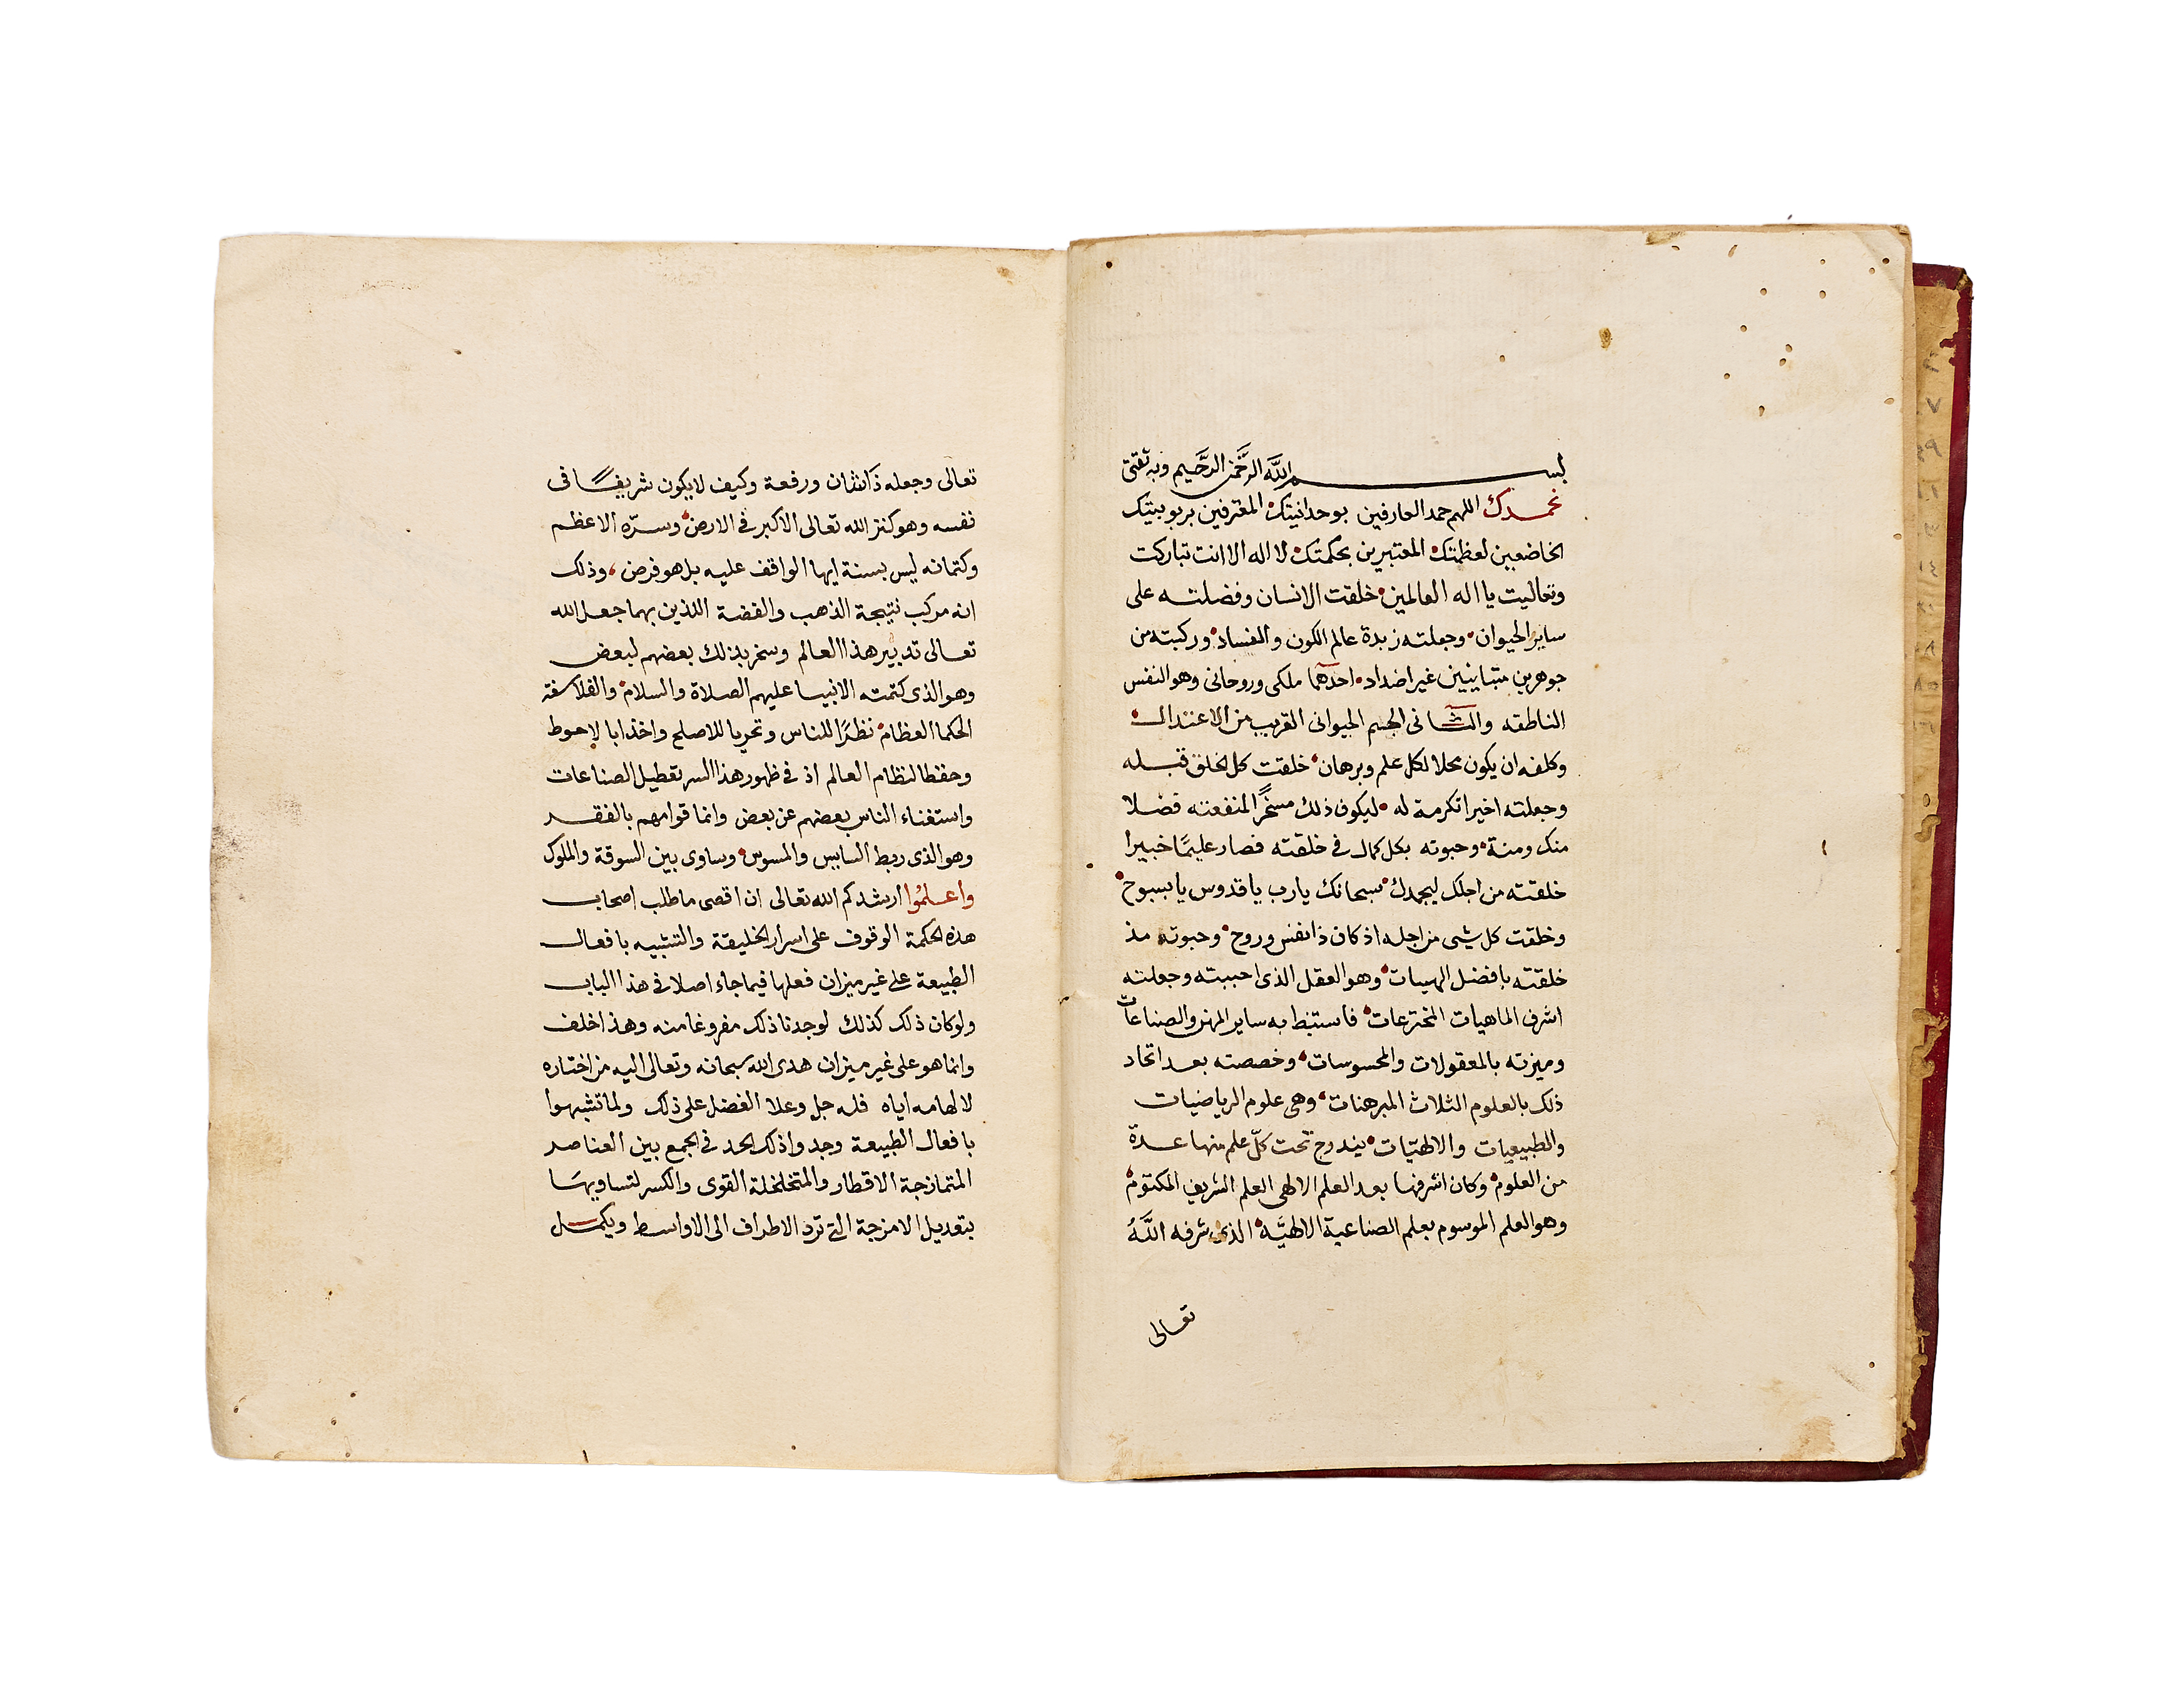 بسم الله الرحمن الرحيم وبه ثقتى
نحمدك اللهم حمد العارفين بوحدانيتك المعترفين بربوبيتك
الخاضعين لعظمتك المعتبرين بحكمتك لا اله الا انت تباركت
وتعاليت يا اله العالمين خلقت الانسان وفضلته على
ساير الحيوان وجعلته زبدة عالم الكون والفساد وركبته من
جوهرين متباينين غير اضداد احدهما ملكى وروحانى وهو النفس
الناطقه والثانى الجسم الحيوانى القريب من الاعتدال
وكلفه ان يكون محلا لكل علم وبرهان خلقت كل الخلق قبله
وجعلته اخيرا تكرمة له ليكون ذلك مسخرًا لمنفعته فضلا
منك ومنة وحبوته بكل كمال فى خلقته فصار عليمًا خبيرا
خلقته من اجلك ليمجدك سبحانك يارب يا قدوس يا سبوح
وخلقت كل شى من اجله اذ كان ذا نفس وروح وحبوته مذ
خلقته بافضل الهبات وهو العقل الذى احببته وجعلته
اشرف الماهيات المخترعات فاستنبط به ساير المهن والصناعات
وميزته بالمعقولات والمحسوسات وخصصته بعد اتحاد
ذلك بالعلوم الثلاث المبرهنات وهى علوم الرياضيات
والطبيعيات والالهيّات يندرج تحت كلّ علم منها عدة
من العلوم وكان اشرفها بعد العلم الالهى العلم الشريف المكتوم
وهو العلم الموسوم بعلم الصناعية الالهيَّة الذى شرفه اللّهُ
تعالى
تعالى وجعله ذا شان ورفعة وكيف لا يكون شريفًا فى
نفسه وهو كنز الله تعالى الاكبر فى الارض وسرّه الاعظم
وكتمانه ليس بسنة ايها الواقف عليه بل هو فرض وذلك
انه مركب نتيجة الذهب والفضة اللذين بهما جعل الله
تعالى تدبير هذا العالم وسخر بذلك بعضهم لبعض
وهو الذى كتمته الانبيا عليهم الصلاة والسلام والفلاسفة
الحكما العظام نظرًا للناس وتحريا للاصلح واخذا بالاحوط
وحفظا لنظام العالم اذ فى ظهور هذا السر تعطيل الصناعات
واستغناء الناس بعضهم عن بعض وانما قوامهم بالفقر
وهو الذى ربط السايس والمسوس وساوى بين السوقة والملوك
واعلمُوا ارشدكم الله تعالى ان اقصى ما طلب اصحاب
هذه الحكمة الوقوف على اسرار الخليقة والتشبيه بافعال
الطبيعة على غير ميزان فعلها فيما جاء اصلا فى هذا الباب
ولو كان ذلك كذلك لوجدنا ذلك مفروغا منه وهذا خلف
وانما هو على غير ميزان هدى الله سبحانه وتعالى اليه من اختاره
لالهامه اياه فله جل وعلا الفضل على ذلك ولما تشبهوا
بافعال الطبيعة وجدوا ذلك الحد فى الجمع بين العناصر
المتمازجة الاقطار والمتخلخلة القوى والكسر لتساويهَا
بتعديل الامزجة التى ترد الاطراف الى الاواسط ويكمل